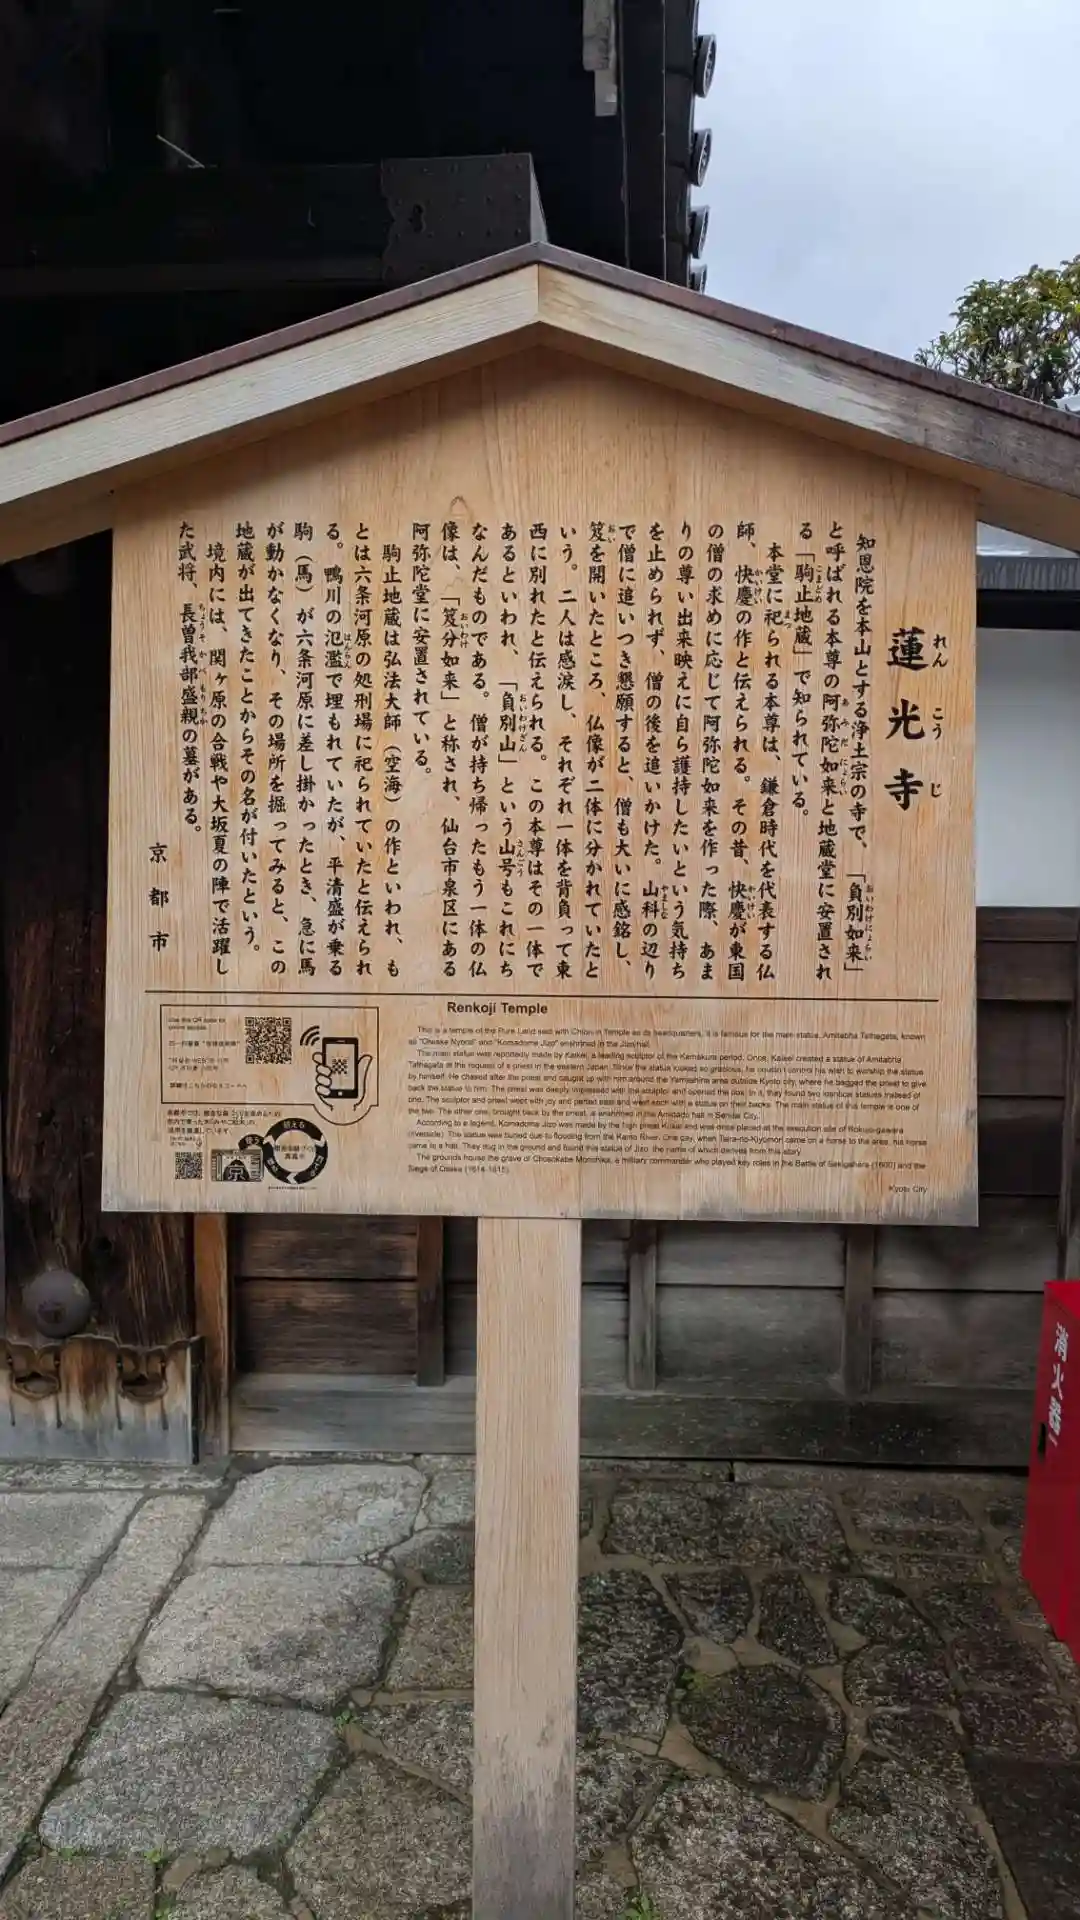 蓮光寺
れんこうじ
知恩院を本山とする浄土宗の寺で、「負別如来」
と呼ばれる本尊の阿弥陀如来と地蔵堂に安置され
る「駒止地蔵」で知られている。
本堂に祀られる本尊は、鎌倉時代を代表する仏
師、快慶の作と伝えられる。その昔、快慶が東国
の僧の求めに応じて阿弥陀如来を作った際、あま
りの尊い出来映えに自ら護持したいという気持ち
を止められず、僧の後を追いかけた。山科の辺り
で僧に追いつき懇願すると、僧も大いに感銘し、
笈を開いたところ、仏像が二体に分かれていたと
いう。二人は感涙し、それぞれ一体を背負って東
西に別れたと伝えられる。この本尊はその一体で
あるといわれ、「負別山」という山号もこれにち
なんだものである。僧が持ち帰ったもう一体の仏
像は、「笈分如来」と称され、仙台市泉区にある
阿弥陀堂に安置されている。
駒止地蔵は弘法大師（空海）の作といわれ、も
とは六条河原の処刑場に祀られていたと伝えられ
る。鴨川の氾濫で埋もれていたが、平清盛が乗る
駒（馬）が六条河原に差し掛かったとき、急に馬
が動かなくなり、その場所を掘ってみると、この
地蔵が出てきたことからその名が付いたという。
境内には、関ヶ原の合戦や大坂夏の陣で活躍し
た武将、長曽我部盛親の墓がある。
京都市
Renkoji Temple
This is a temple of the Pure Land sect with Chion-in Temple as its headquarters. It is famous for the main statue, Amitabha Tathagata, known
as "Oiwake Nyorai" and "Komadome Jizo" enshrined in the Jizo hall.
The main statue was reportedly made by Kaikei, a leading sculptor of the Kamakura period. Once, Kaikei created a statue of Amitabha
Tathagata at the request of a priest in the eastern Japan. Since the statue looked so gracious, he couldn't control his wish to worship the statue
by himself. He chased after the priest and caught up with him around the Yamashina area outside Kyoto city, where he begged the priest to give
back the statue to him. The priest was deeply impressed with the sculptor and opened the box. In it, they found two identical statues instead of
one. The sculptor and priest wept with joy and parted east and west each with a statue on their backs. The main statue of this temple is one of
the two. The other one, brought back by the priest, is enshrined in the Amidado hall in Sendai City.
According to a legend, Komadome Jizo was made by the high priest Kukai and was once placed at the execution site of Rokujo-gawara
(riverside). The statue was buried due to flooding from the Kamo River. One day, when Taira-no-Kiyomori came on a horse to the area, his horse
came to a halt. They dug in the ground and found this statue of Jizo, the name of which derives from this story.
The grounds house the grave of Chosokabe Morichika, a military commander who played key roles in the Battle of Sekigahara (1600) and the
Siege of Osaka (1614-1615).
Kyoto City
Use this QR code for
消火器